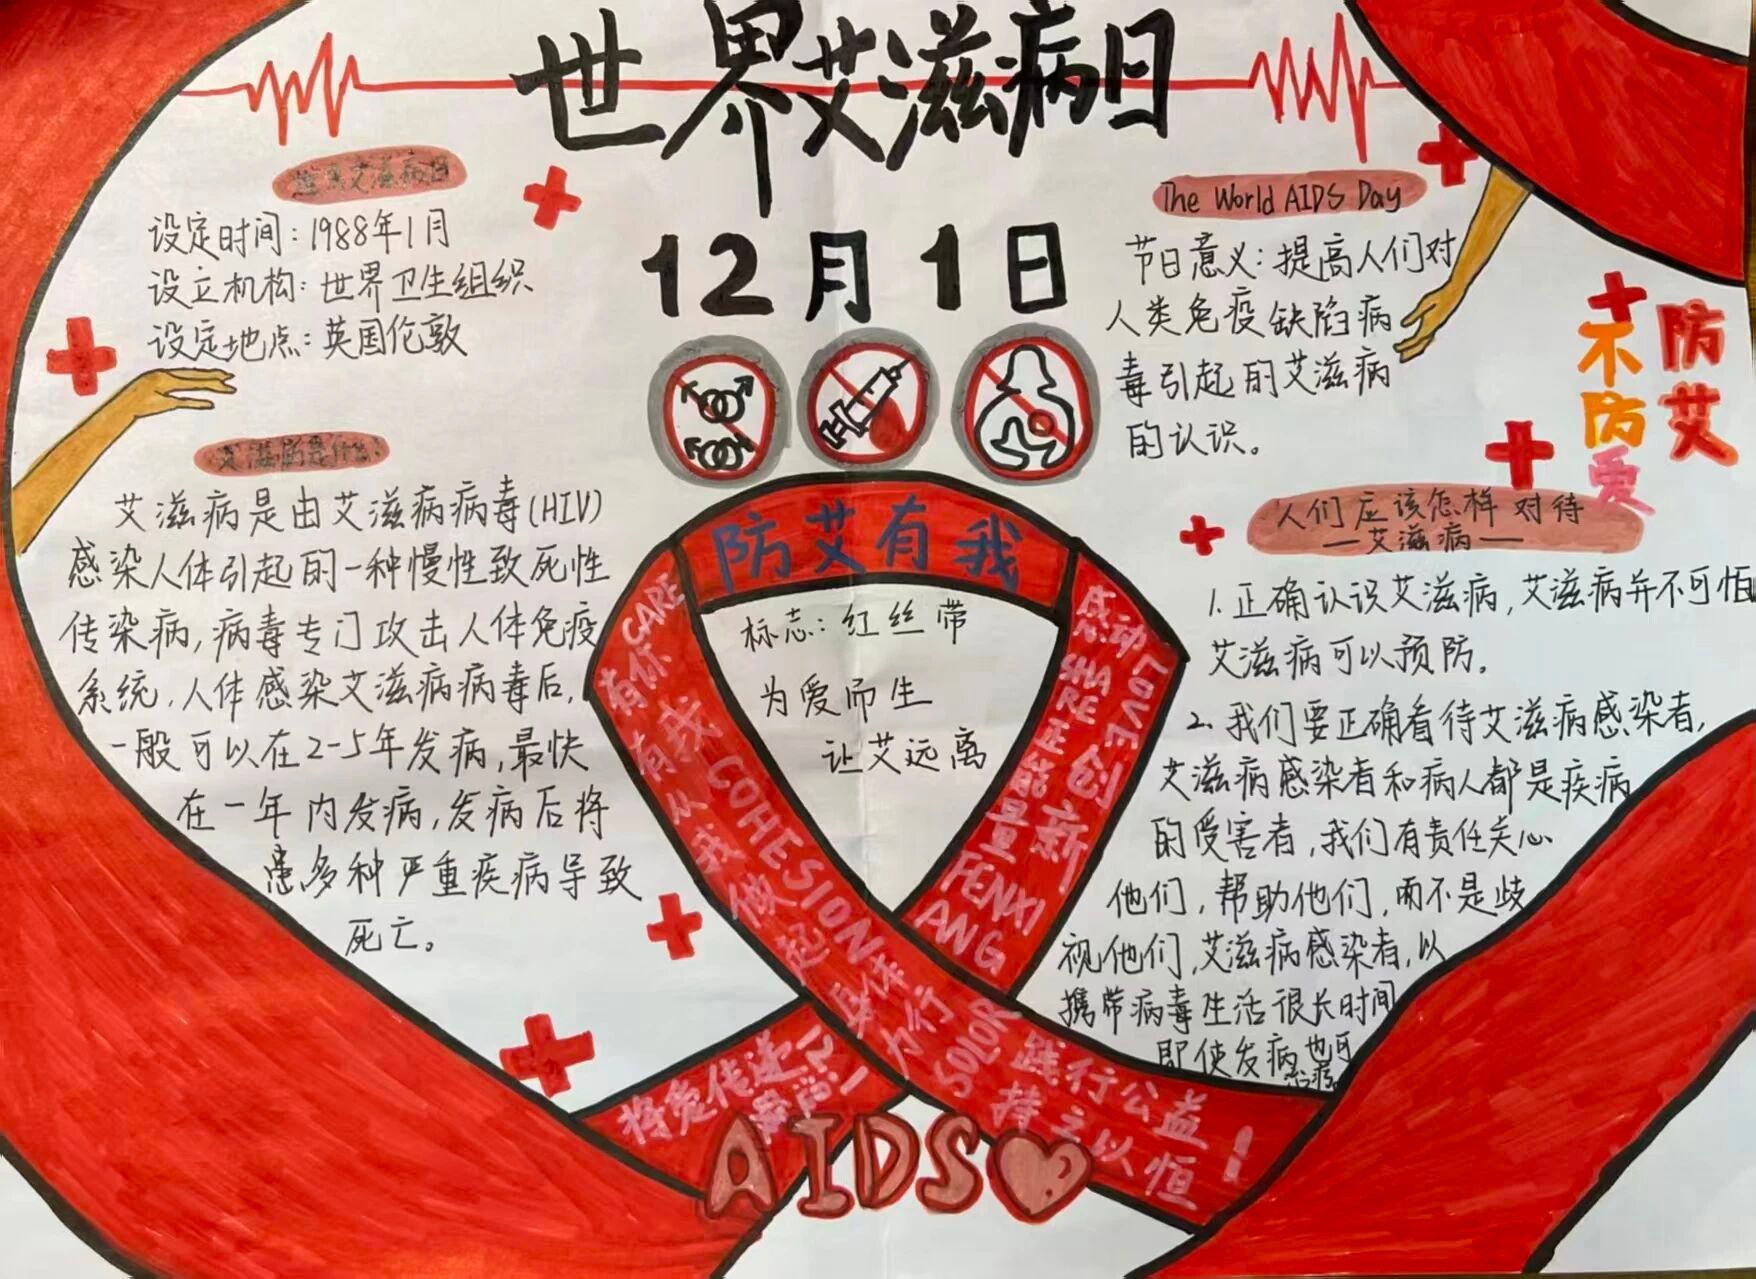 世界艾滋病日
12月1日
世界艾滋病日
设定时间：1988年1月
设立机构：世界卫生组织
设定地点：英国伦敦
艾滋病是什么?
艾滋病是由艾滋病病毒(HIV)
感染人体引起的一种慢性致死性
传染病,病毒专门攻击人体免疫
系统,人体感染艾滋病病毒后,
一般可以在2-5年发病,最快
在一年内发病,发病后将
患多种严重疾病导致
死亡。
The World AIDS Day
节日意义：提高人们对
人类免疫缺陷病
毒引起的艾滋病
的认识。
防艾
不防爱
人们应该怎样对待
—艾滋病—
1.正确认识艾滋病,艾滋病并不可怕
艾滋病可以预防.
2.我们要正确看待艾滋病感染者,
艾滋病感染者和病人都是疾病
的受害者,我们有责任关心
他们,帮助他们,而不是歧
视他们,艾滋病感染者,以
携带病毒生活很长时间
即使发病也可
治疗。
防艾有我
标志：红丝带
为爱而生
让艾远离
有你CARE
有我COHESION
从我做起
身体力行
SOLOR
践行公益！
持之以恒
感动LOVE
SHARE
创新
正能量
FENXIANG
将爱传递
AIDS